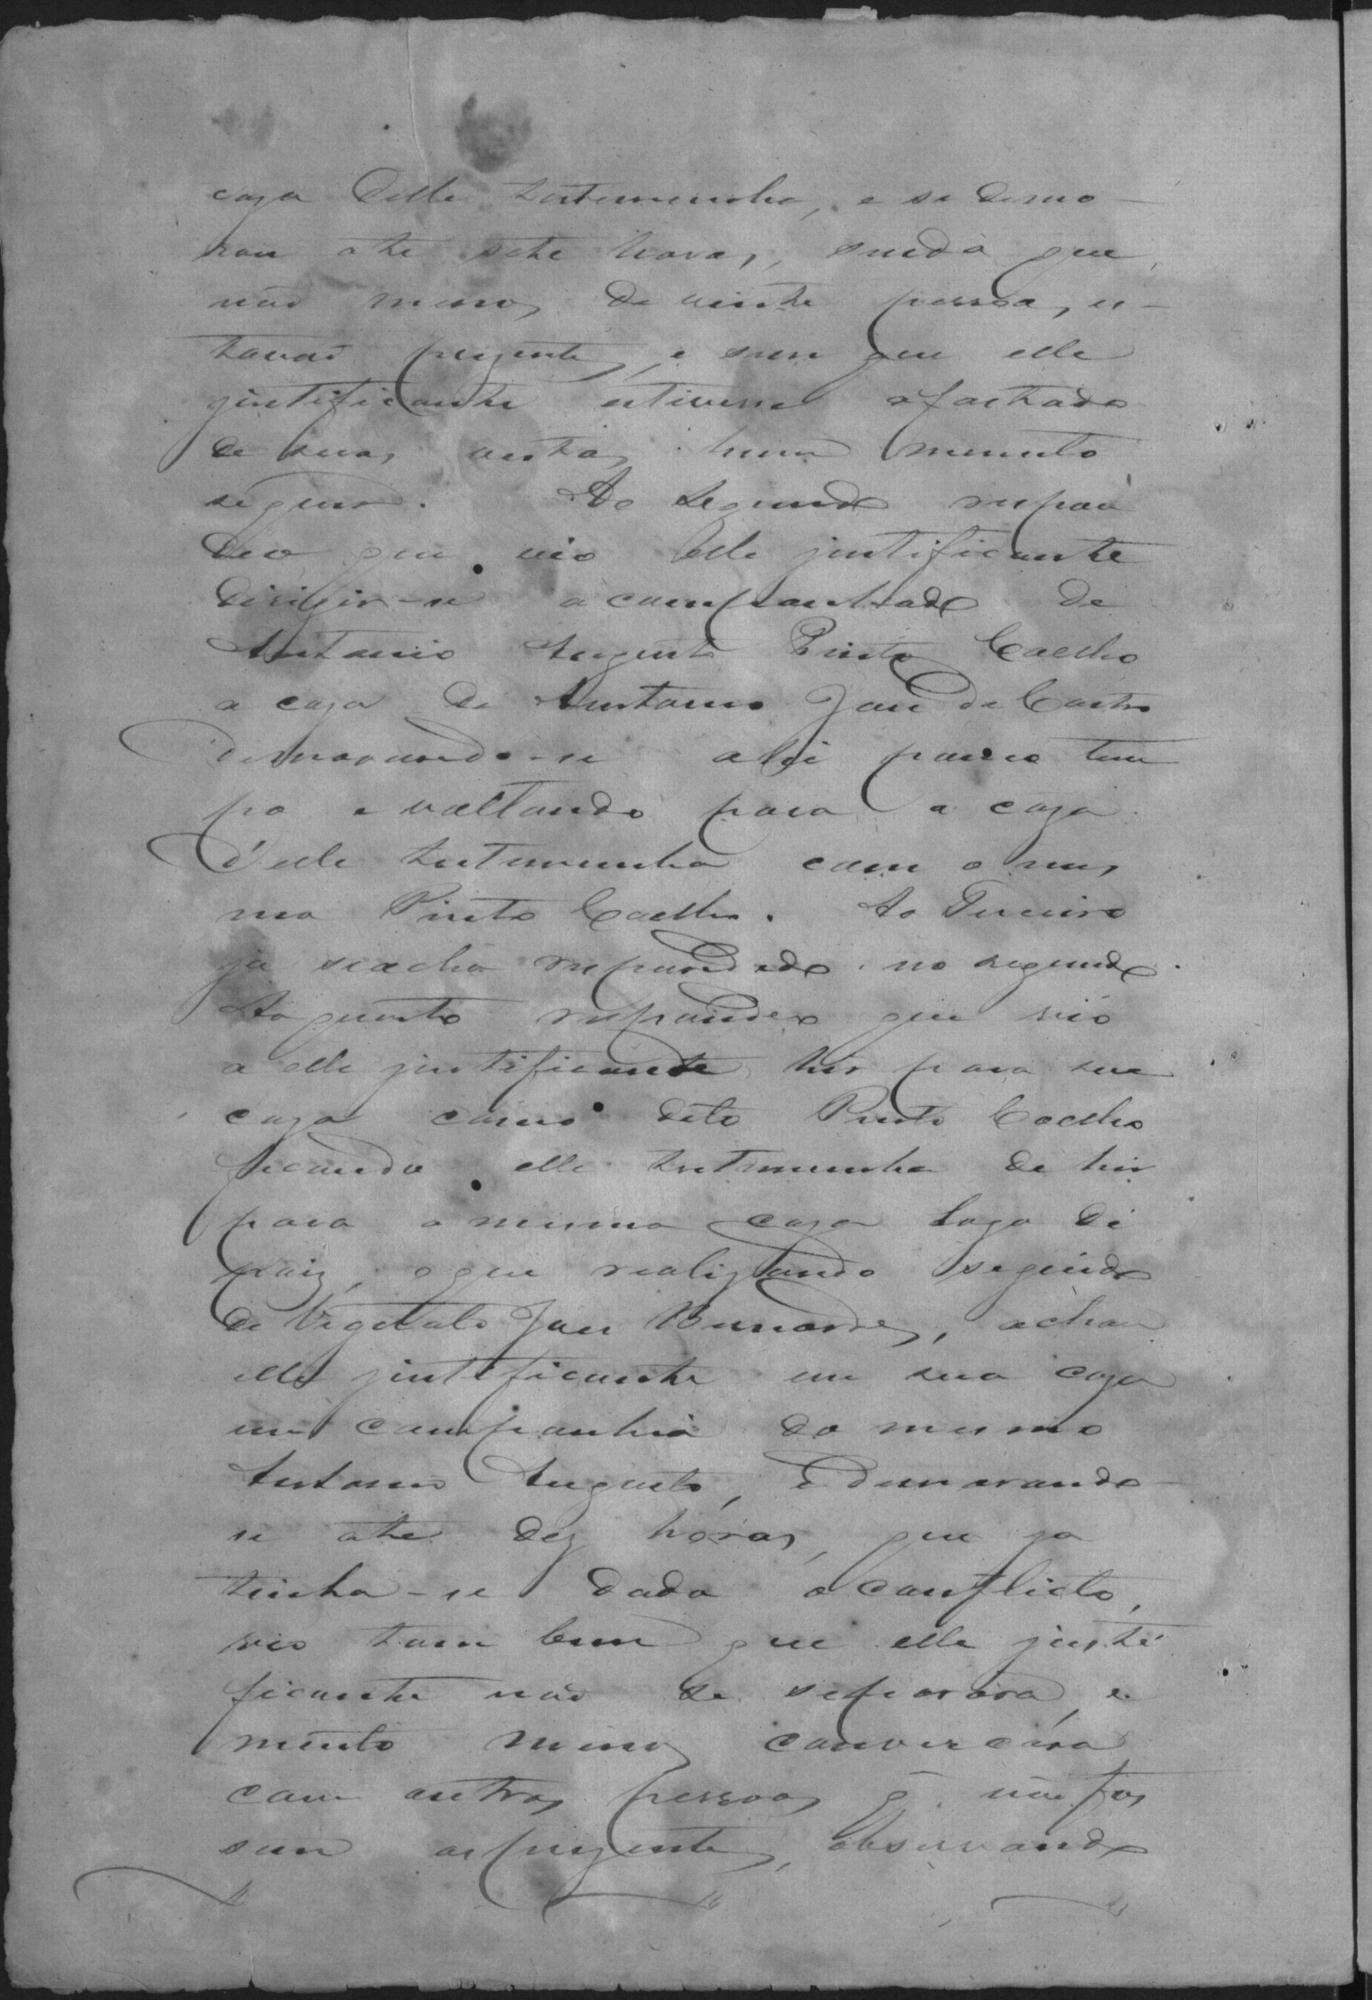 caza delle testemunha, e se demo-
rou athe sete horas, sendo que
não menos de vinte pessoas es-
tavão prezentes, e sem que elle
justificante estivesse afastado
de suas vistas hum minuto
seguer. Ao segundo respon
deo que vio elle justificante
dirigir-se acompanhado de
Antonio Augusto Pinto Coelho
a caza de Antonio José de Castro
demorando-se alli pouco tem
po e voltando para a caza
d'elle testemunha com o mes
mo Pinto Coelho. Ao Terceiro
ja seacha respondido no segundo.
Ao quarto respondeo que vio
a elle justificante hir para sua
caza como dito Pinto Coelho
ficando elle testemunha de hir
para a mesma caza logo de
pois, oque realizando seguido
de José Bernardes, achou
elle justificante em sua caza
em companhia do mesmo
Antonio Augusto, e demorando-
se athe dez horas, que ja
tinha-se dado o conflicto,
vio tam bem que elle justi
ficante não se separára, e
muito menos converçára
com outras pessoas q̃ não fos
sem as prezentes, observando